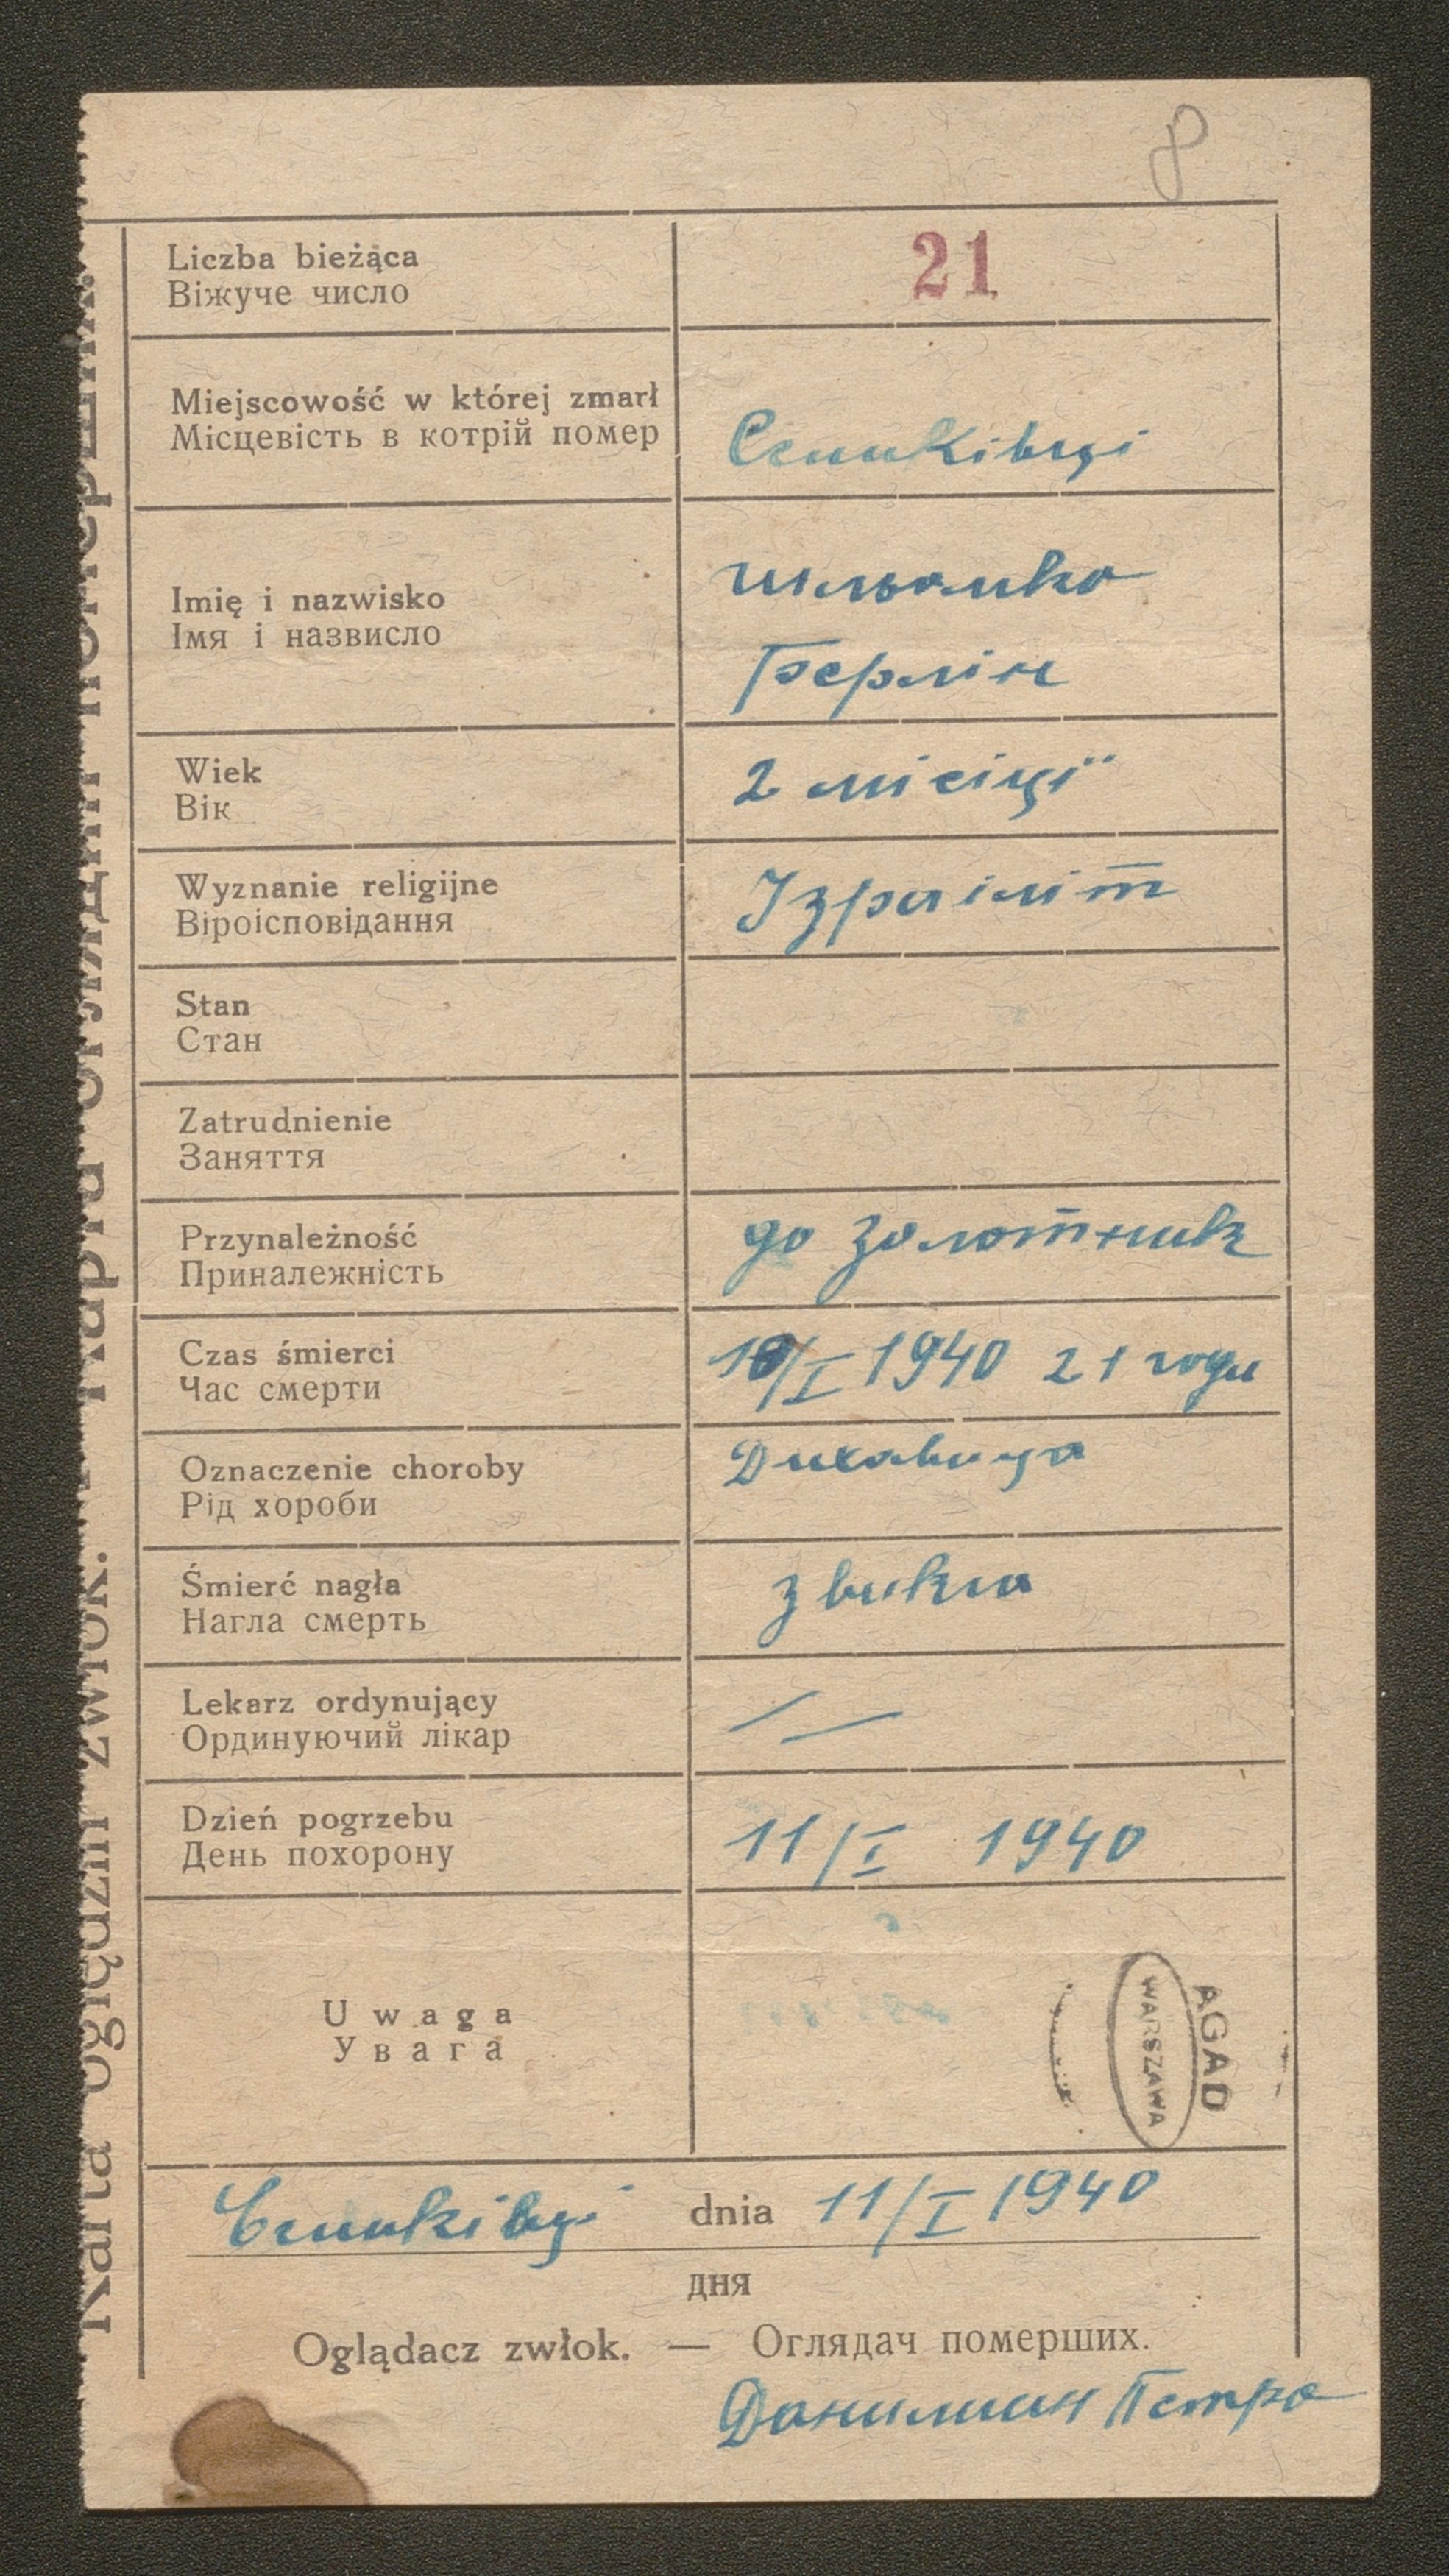 8
Liczba bieżąca
Віжуче число
21
Miejscowość w której zmarł
Місцевість в котрій помер
Семиківці
Imię i nazwisko
Імя і назвисло
Берлін
Wiek
Вік
2 місіції
Wyznanie religijne
Віроісповідання
Ізраіліт
Stan
Стан
Zatrudnienie
Заняття
Przynależność
Приналежність
до Золотник
Czas śmierci
Час смерти
10/I 1940 21 году
Oznaczenie choroby
Рід хороби
Дихавиця
Śmierć nagła
Нагла смерть
звикла
Lekarz ordynujący
Ординуючий лікар
Dzień pogrzebu
День похорону
11/I 1940
Uwaga
Увага
AGAD
WARSZAWA
Семиківці dnia 11/I 1940
дня
Oglądacz zwłok. — Оглядач померших.
Данилишин Петро
Karta oględzin zwłok.